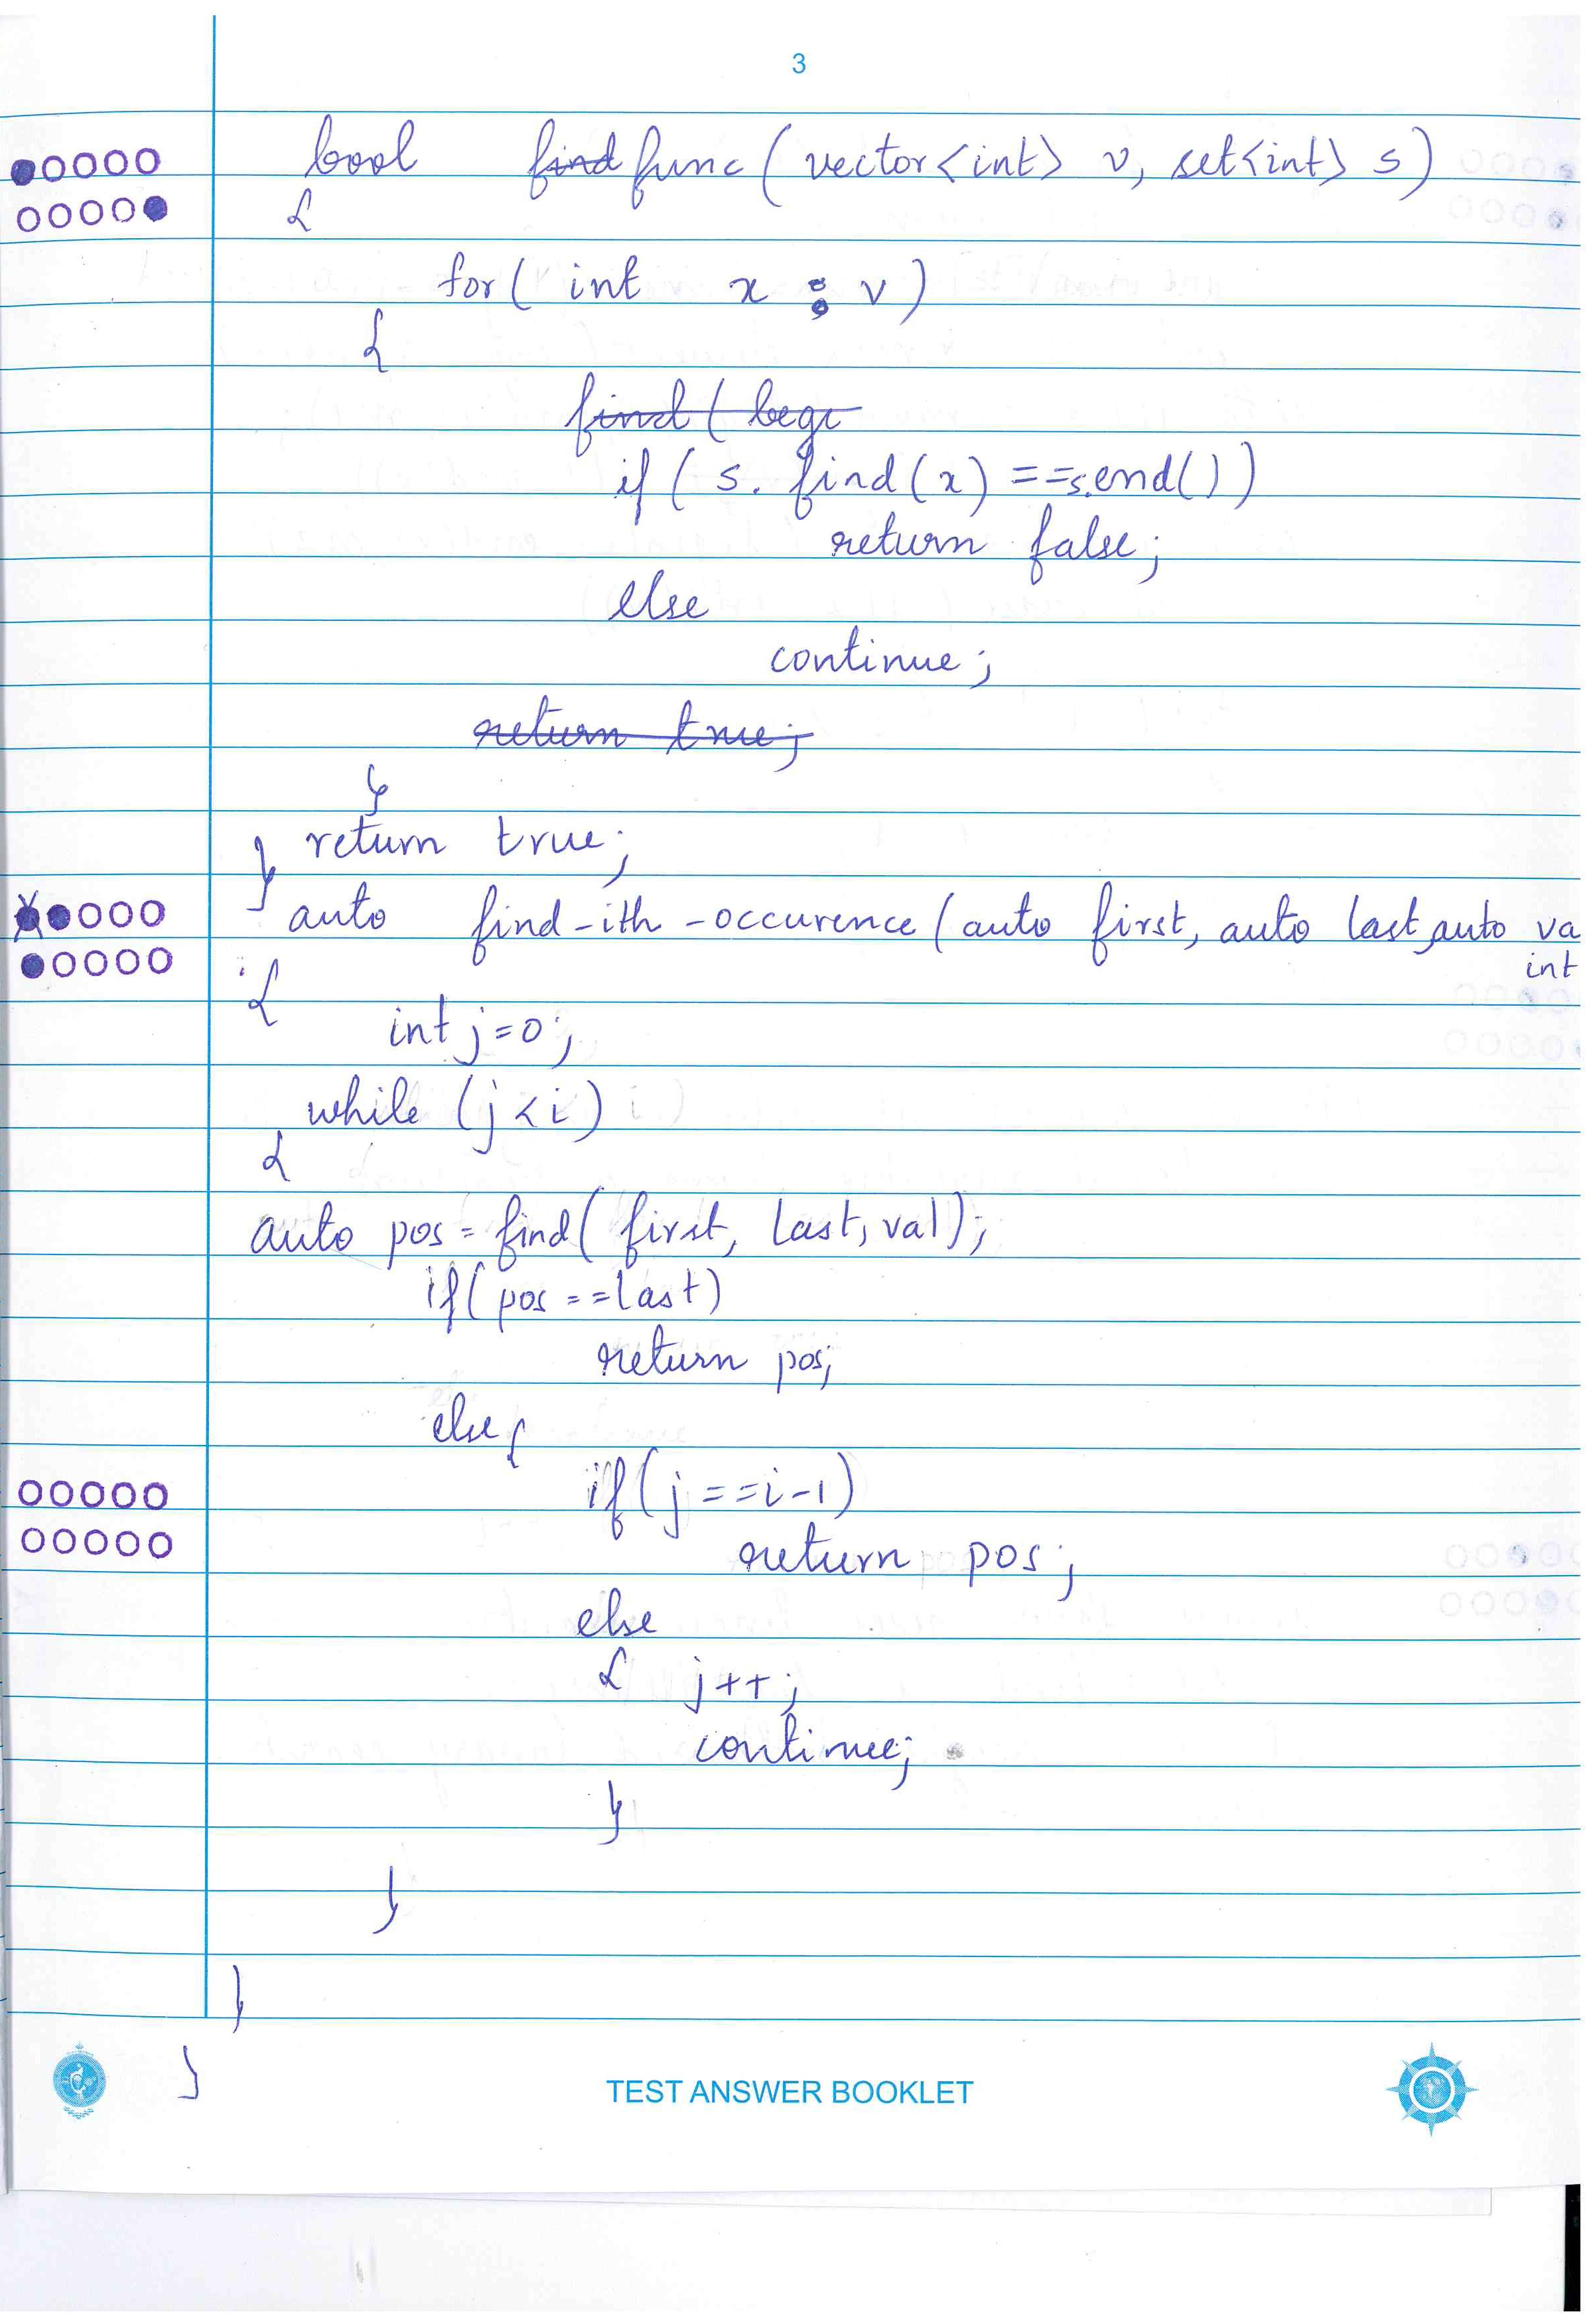 3
bool find func ( vector<int> v, set<int> s )
{
for ( int x : v )
{
find ( begi
if ( s. find (x) == s.end() )
return false;
else
continue;
return true;
}
return true;
}
auto find-ith-occurence ( auto first, auto last, auto va
int
{
int j=0;
while (j < i)
{
auto pos = find( first, last, val );
if( pos == last )
return pos;
else {
if( j == i-1 )
return pos;
else
{ j++;
continue;
}
}
}
}
TEST ANSWER BOOKLET